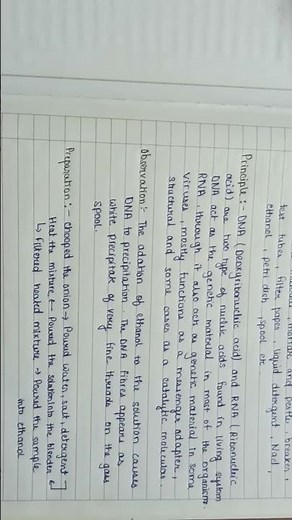 mortar and pestle, breaker,
test tubes, filter paper, liquid detergent, Nacl,
ethanol, petri dish, spool etc
Principle:- DNA (Deoxyribonucleic acid) and RNA (Ribonucleic
acid) are two type of nucleic acids found in living system
DNA act as the genetic material in most of the organisms.
RNA, through it also act as genetic material in some
viruses, mostly functions as a messenger, adapter,
structural and some cases as a catalytic molecular.
Observation:- The addition of ethanol to this solution causes
DNA to precipitation. The DNA fibres appears as
white precipitate of very fine threads on the glass
spool.
Preparation:- chopped the onion → Poured water, salt, detergent
Heat the mixture ← Poured the solution into the blender ←
↳ filtered heated mixture → Poured the sample
into ethanol